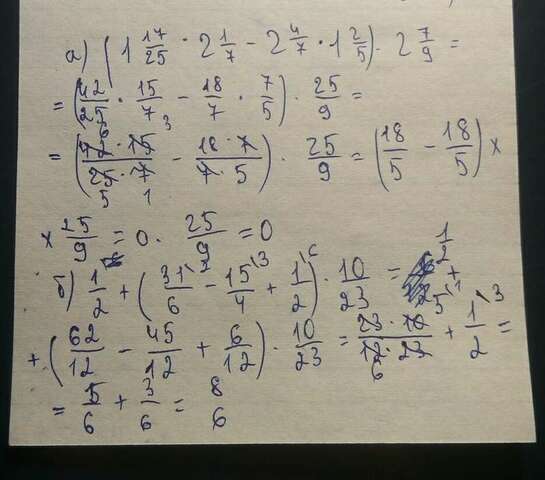 а) (1 17/25 · 2 1/7 - 2 4/7 · 1 2/5) · 2 7/9 =
= (42/25 · 15/7 - 18/7 · 7/5) · 25/9 =
= (42 · 15/25 · 7 - 18 · 7/7 · 5) · 25/9 = (18/5 - 18/5) ×
× 25/9 = 0 · 25/9 = 0
б) 1/2 + (31/6 - 15/4 + 1/2) · 10/23 = 1/2 +
+ (62/12 - 45/12 + 6/12) · 10/23 = 23 · 10/12 · 23 + 1/2 =
= 5/6 + 3/6 = 8/6